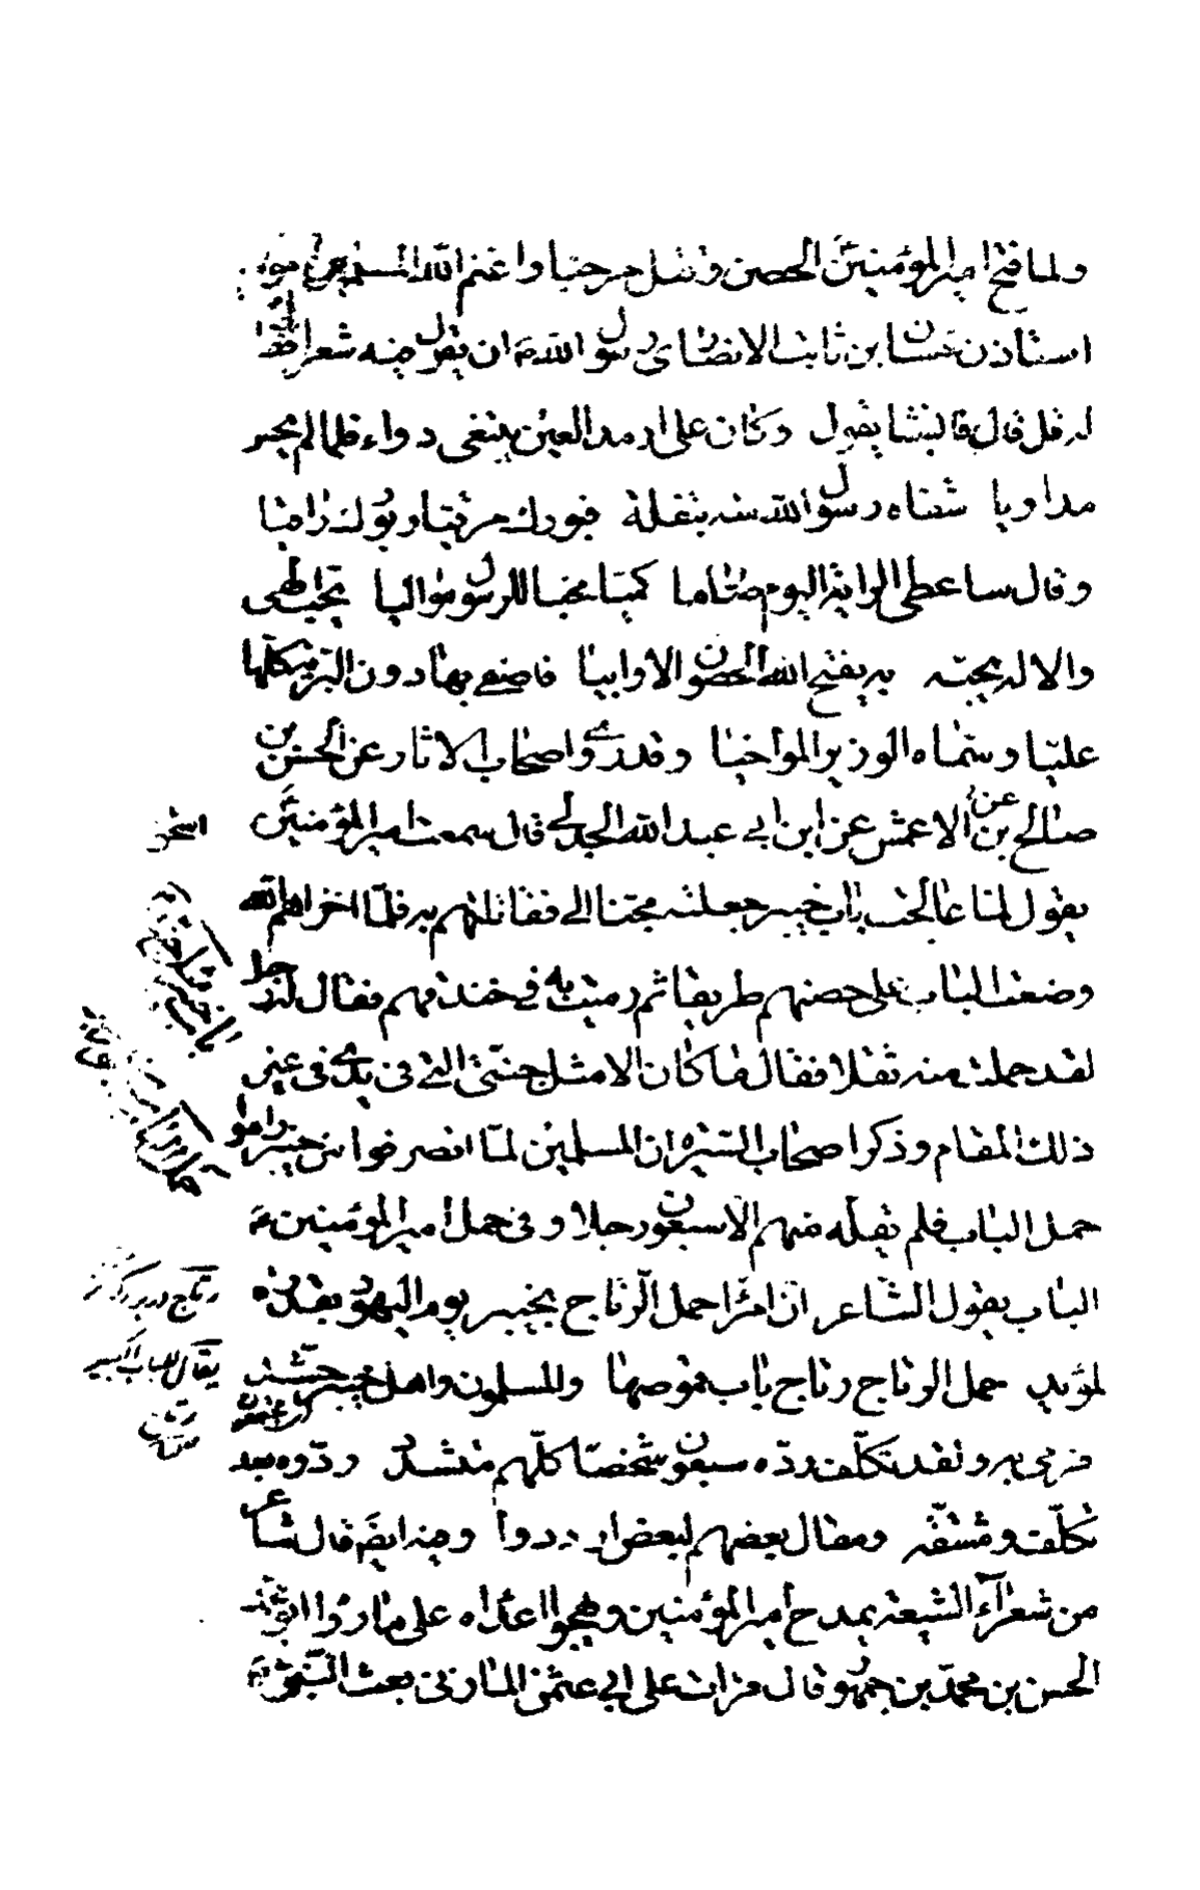 ولما فتح امير المؤمنين الحصن وقتل مرحبا واغنم الله المسلمين
استاذن حسان بن ثابت الانصاری رسول الله ان يقول فيه شعرا فقال
له قل قال فانشا يقول وكان على ارمد العين يبتغى دواء فلما لم يحس
مداويا شفاه رسول الله منه بتفلة فبورك مرقيا وبورك راقيا
وقال ساعطى الراية اليوم صارما كميا محبا للرسول مواليا يحب الهى
والاله يحبه به يفتح الله الحصون الاوابيا فاصفى بها دون البرية كلها
عليا وسماه الوزير المواخيا وقد روى اصحاب الاثار عن الحسن بن
صالح عن الاعمش عن ابن ابى عبد الله الجدلى قال سمعت امير المؤمنين
يقول لما عالجت باب خيبر جعلته مجنا لى فقاتلتهم به فلما اخزاهم الله
وضعت الباب على حصنهم طريقا ثم رميت به فى خندقهم فقال له رجل
لقد حملت منه ثقلا فقال ما كان الا مثل جنتى التى فى يدى فى غير
ذلك المقام وذكر اصحاب السيرة ان المسلمين لما انصرفوا من خيبر راموا
حمل الباب فلم يقله منهم الا سبعون رجلا وفى حمل امير المؤمنين
الباب يقول الشاعر ان امرأ حمل الرتاج بخيبر يوم اليهود بقدرة
لمؤيد حمل الرتاج رتاج باب قموصها والمسلمون واهل خيبر حشد
فرمى به ولقد تكلف رده سبعون شخصا كلهم متشدد ردوه بعد
تكلف ومشقة ومقال بعضهم لبعض ارددوا وفيه ايضا قال شاعر
من شعراء الشيعة يمدح امير المؤمنين ويهجو اعداه على ما رواه ابو محمد
الحسن بن محمد بن جمهور قال قرات على ابى عثمن المازنى بعث النبى